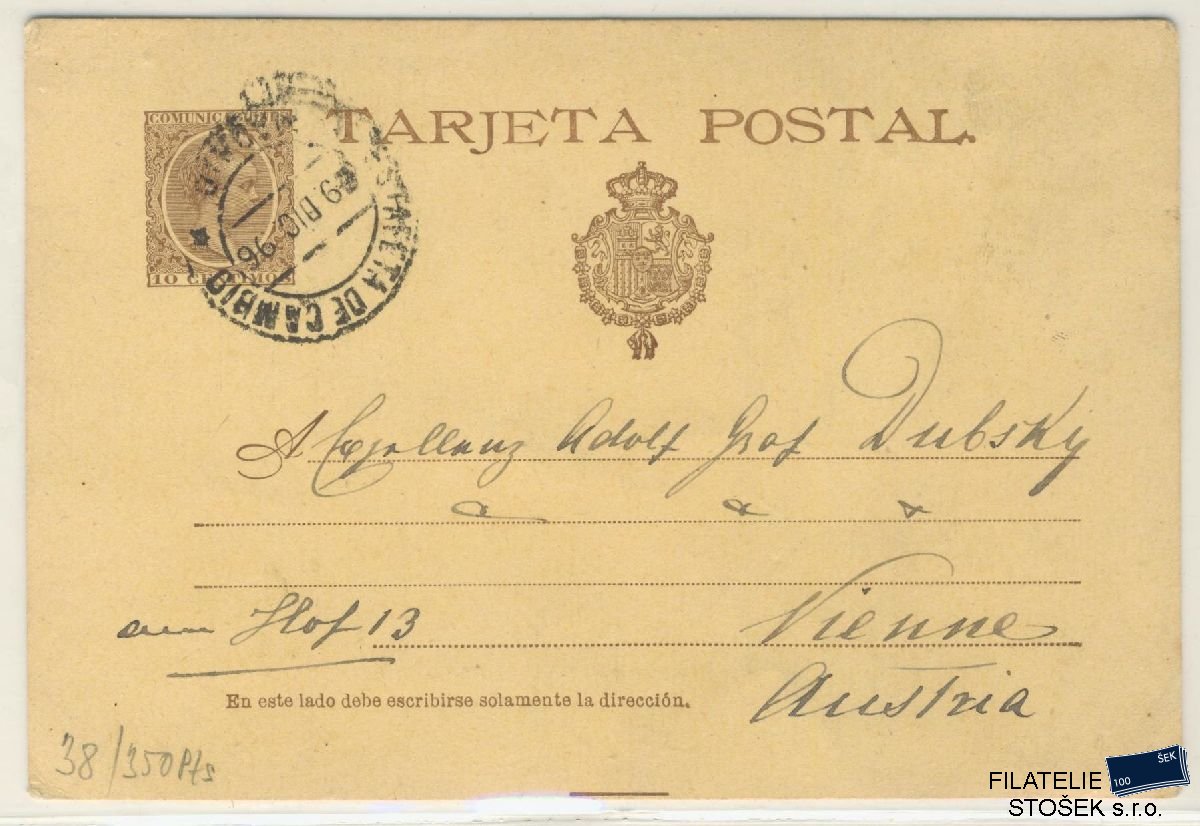 TARJETA POSTAL.
COMUNICACIONES
10 CENTIMOS
ESTAFETA DE CAMBIO
9 DIC 96
A Exzellenz Adolf Graf Dubsky
am Hof 13
Vienne
Austria
En este lado debe escribirse solamente la dirección.
38/350 Pts
100 ŠEK
FILATELIE
STOŠEK s.r.o.